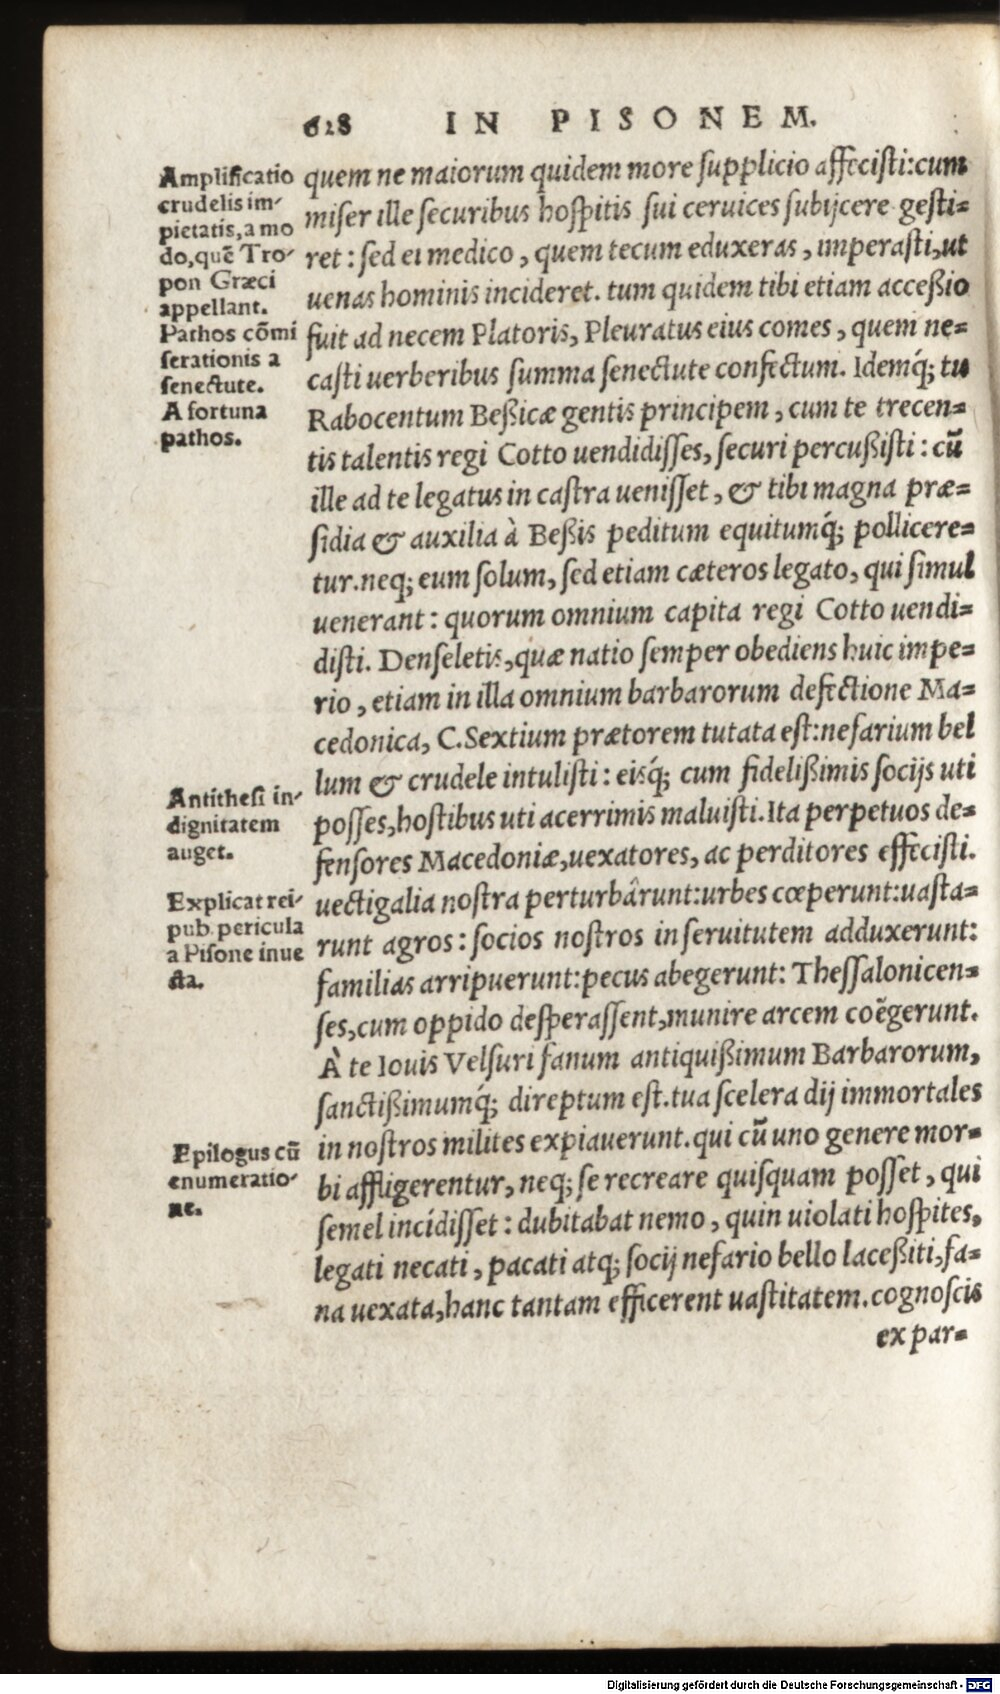 628 IN PISONEM.
Amplificatio
crudelis im-
pietatis, a mo
do, quē Tro-
pon Græci
appellant.
Pathos cōmi
serationis a
senectute.
A fortuna
pathos.
quem ne maiorum quidem more supplicio affecisti: cum
miser ille securibus hospitis sui ceruices subijcere gesti=
ret: sed ei medico, quem tecum eduxeras, imperasti, ut
uenas hominis incideret. tum quidem tibi etiam acceßio
fuit ad necem Platoris, Pleuratus eius comes, quem ne=
casti uerberibus summa senectute confectum. Idemq́; tu
Rabocentum Beßicæ gentis principem, cum te trecen=
tis talentis regi Cotto uendidisses, securi percußisti: cū
ille ad te legatus in castra uenisset, & tibi magna præ=
sidia & auxilia à Beßis peditum equitumq́; pollicere=
tur. neq; eum solum, sed etiam cæteros legato, qui simul
uenerant: quorum omnium capita regi Cotto uendi=
disti. Denseletis, quæ natio semper obediens huic impe=
rio, etiam in illa omnium barbarorum defectione Ma=
cedonica, C. Sextium prætorem tutata est: nefarium bel
lum & crudele intulisti: eisq́; cum fidelißimis socijs uti
posses, hostibus uti acerrimis maluisti. Ita perpetuos de=
fensores Macedoniæ, uexatores, ac perditores effecisti.
uectigalia nostra perturbârunt: urbes cœperunt: uasta=
runt agros: socios nostros in seruitutem adduxerunt:
familias arripuerunt: pecus abegerunt: Thessalonicen=
ses, cum oppido desperassent, munire arcem coëgerunt.
À te Iouis Velsuri fanum antiquißimum Barbarorum,
sanctißimumq́; direptum est. tua scelera dij immortales
in nostros milites expiauerunt. qui cū uno genere mor=
bi affligerentur, neq; se recreare quisquam posset, qui
semel incidisset: dubitabat nemo, quin uiolati hospites,
legati necati, pacati atq; socij nefario bello laceßiti, fa=
na uexata, hanc tantam efficerent uastitatem. cognoscis
ex par=
Antithesi in-
dignitatem
auget.
Explicat rei-
pub. pericula
a Pisone inue
cta.
Epilogus cū
enumeratio-
ne.
Digitalisierung gefördert durch die Deutsche Forschungsgemeinschaft - DFG